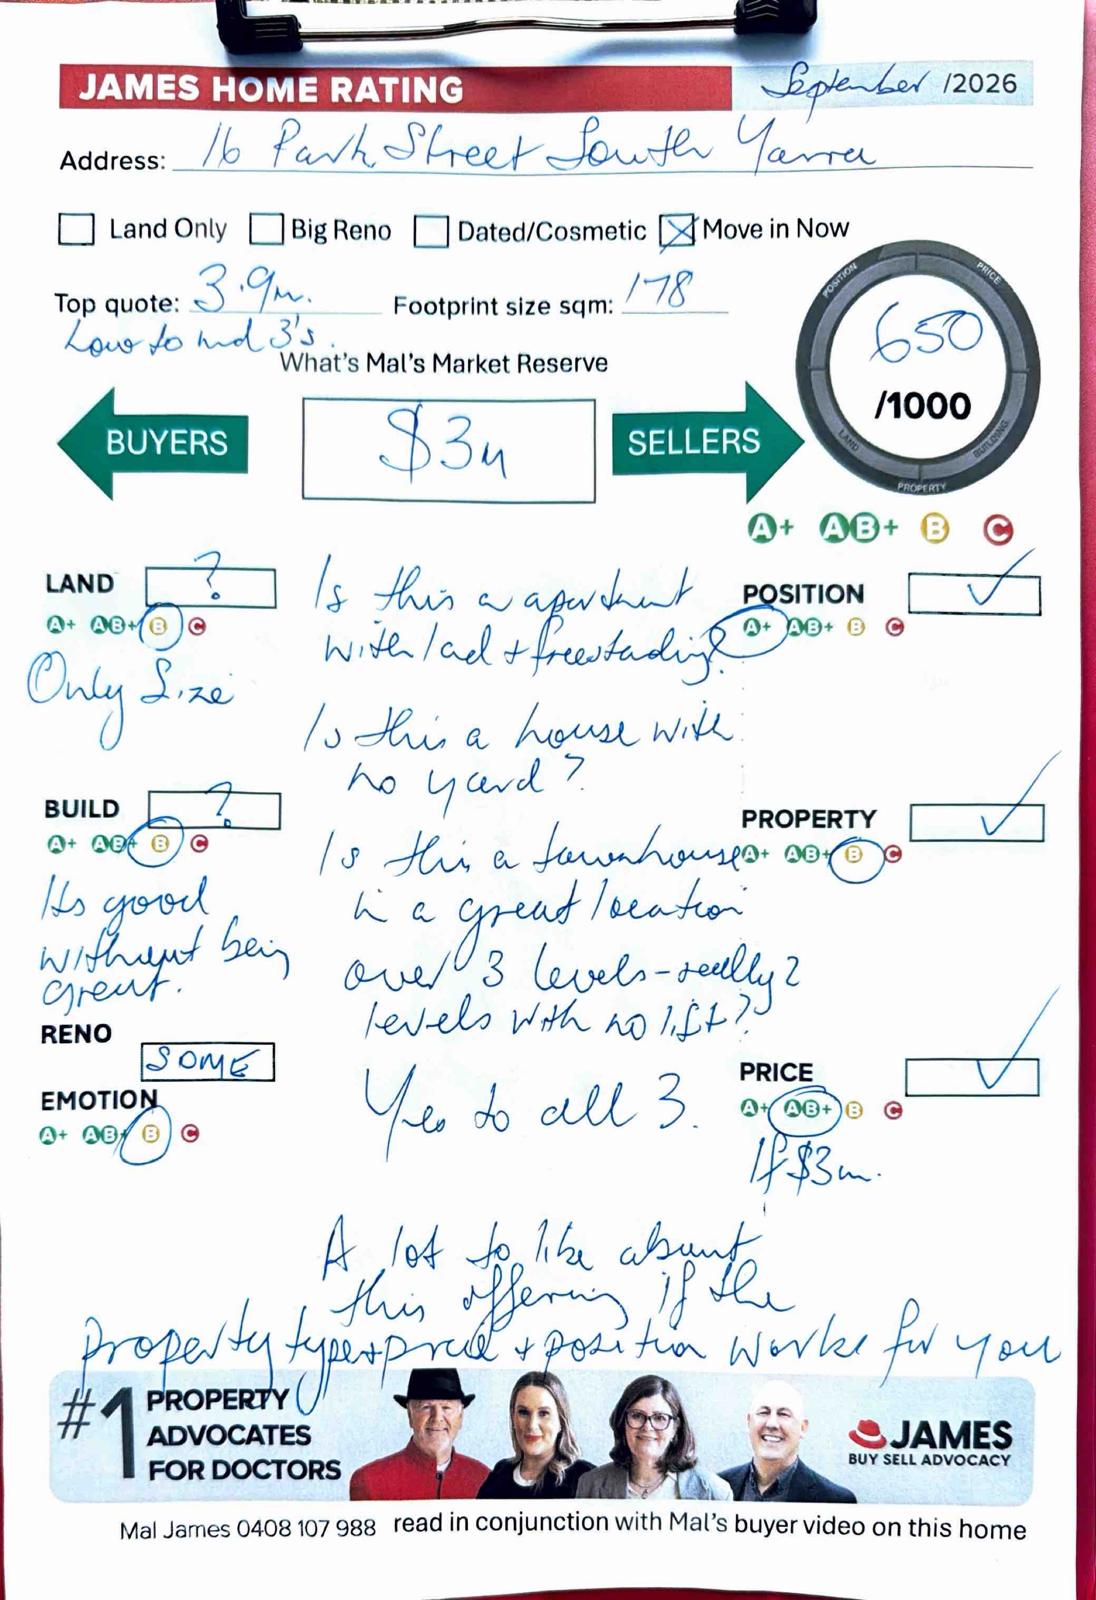 JAMES HOME RATING
September /2026
Address: 16 Park Street South Yarra
Land Only Big Reno Dated/Cosmetic Move in Now
Top quote: 3.9m. Footprint size sqm: 178
Low to mid 3's.
What's Mal's Market Reserve
BUYERS
$3m
SELLERS
POSITION
PRICE
BUILDING
PROPERTY
LAND
650
/1000
A+ AB+ B C
LAND ?
A+ AB+ B C
Only Size
BUILD ?
A+ AB+ B C
Its good
without being
great.
RENO
SOME
EMOTION
A+ AB+ B C
Is this a apartment
with land + freestanding?
Is this a house with
no yard?
Is this a townhouse
in a great location
over 3 levels - really 2
levels with no lift?
Yes to all 3.
POSITION ✓
A+ AB+ B C
PROPERTY ✓
A+ AB+ B C
PRICE ✓
A+ AB+ B C
If $3m.
A lot to like about
this offering if the
property type + price + position works for you
#1 PROPERTY
ADVOCATES
FOR DOCTORS
JAMES
BUY SELL ADVOCACY
Mal James 0408 107 988 read in conjunction with Mal's buyer video on this home